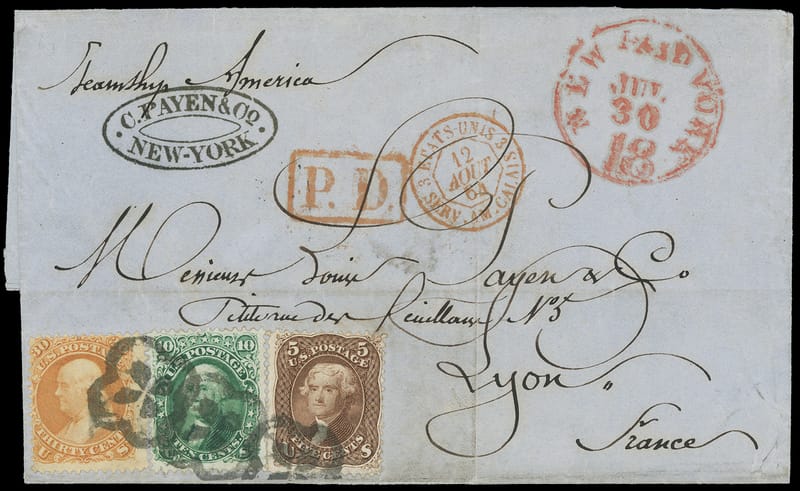 Steamship America
C. PAYEN & Co.
NEW-YORK
P.D.
3 ETATS-UNIS 3
SERV. AM. CALAIS
12
AOUT
64
NEW PAID YORK
JUL
30
18
Messieurs Louis Payen & Co
Petite rue des Feuillans No 5
Lyon "
France
30
U.S. POSTAGE
THIRTY CENTS
U S
10 10
U.S. POSTAGE
TEN CENTS
5 5
U.S. POSTAGE
FIVE CENTS
U S